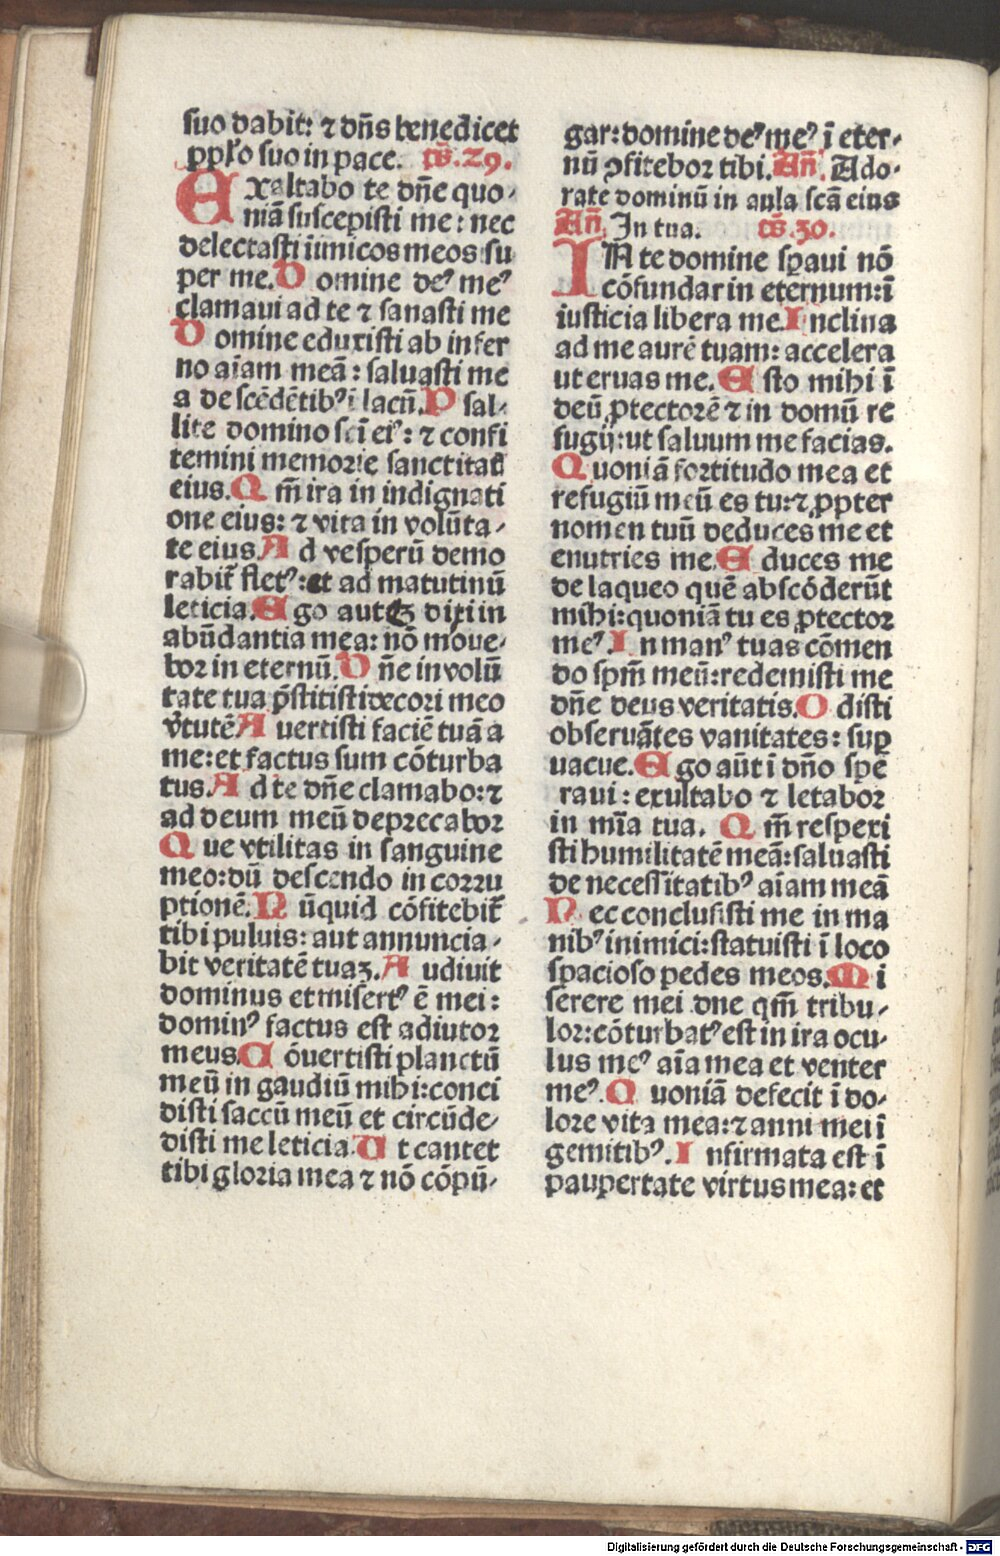 suo dabit: ⁊ dn̄s benedicet
pp̄lo suo in pace. p̄s. 29.
Exaltabo te dn̄e quo⸗
niā suscepisti me: nec
delectasti inimicos meos su
per me. Domine deꝰ meꝰ
clamaui ad te ⁊ sanasti me
Domine eduxisti ab infer
no aīam meā: saluasti me
a descēdētibꝰ ī lacū. Psal⸗
lite domino scī eiꝰ: ⁊ confi
temini memorie sanctitatꝭ
eius. Qm̄ ira in indignati
one eius: ⁊ vita in volūta⸗
te eius. Ad vesperū demo
rabit̄ fletꝰ: et ad matutinū
leticia. Ego autꝫ dixi in
abūdantia mea: nō moue⸗
bor in eternū. Dn̄e in volū
tate tua p̄stitisti decori meo
v̄tutē. Auertisti faciē tuā a
me: et factus sum cōturba
tus. Ad te dn̄e clamabo: ⁊
ad deum meū deprecabor
Que vtilitas in sanguine
meo: dū descendo in corru
ptionē. Nūquid cōfitebit̄
tibi puluis: aut annuncia⸗
bit veritatē tuaꝫ. Audiuit
dominus et misertꝰ ē mei:
dominꝰ factus est adiutor
meus. Cōuertisti planctū
meū in gaudiū mihi: conci
disti saccū meū et circūde⸗
disti me leticia. Ut cantet
tibi gloria mea ⁊ nō cōpū⸗
gar: domine deꝰ meꝰ ī eter⸗
nū ꝯfitebor tibi. Añ. Ado⸗
rate dominū in aula scā eius
Añ. In tua. p̄s. 30.
IN te domine sꝑaui nō
cōfundar in eternum: ī
iusticia libera me. Inclina
ad me aurē tuam: accelera
ut eruas me. Esto mihi ī
deū ꝓtectorē ⁊ in domū re
fugij: ut saluum me facias.
Quoniā fortitudo mea et
refugiū meū es tu: ⁊ ꝓpter
nomen tuū deduces me et
enutries me. Educes me
de laqueo quē abscōderūt
mihi: quoniā tu es ꝓtector
meꝰ. In manꝰ tuas cōmen
do spm̄ meū: redemisti me
dn̄e deus veritatis. Odisti
obseruātes vanitates: suꝑ
uacue. Ego aūt ī dn̄o spe
raui: exultabo ⁊ letabor
in mīa tua. Qm̄ respexi
sti humilitatē meā: saluasti
de necessitatibꝰ aīam meā
Nec conclusisti me in ma
nibꝰ inimici: statuisti ī loco
spacioso pedes meos. Mi
serere mei dn̄e qm̄ tribu⸗
lor: cōturbatꝰ est in ira ocu⸗
lus meꝰ aīa mea et venter
meꝰ. Quoniā defecit ī do⸗
lore vita mea: ⁊ anni mei ī
gemitibꝰ. Infirmata est ī
paupertate virtus mea: et
Digitalisierung gefördert durch die Deutsche Forschungsgemeinschaft - DFG